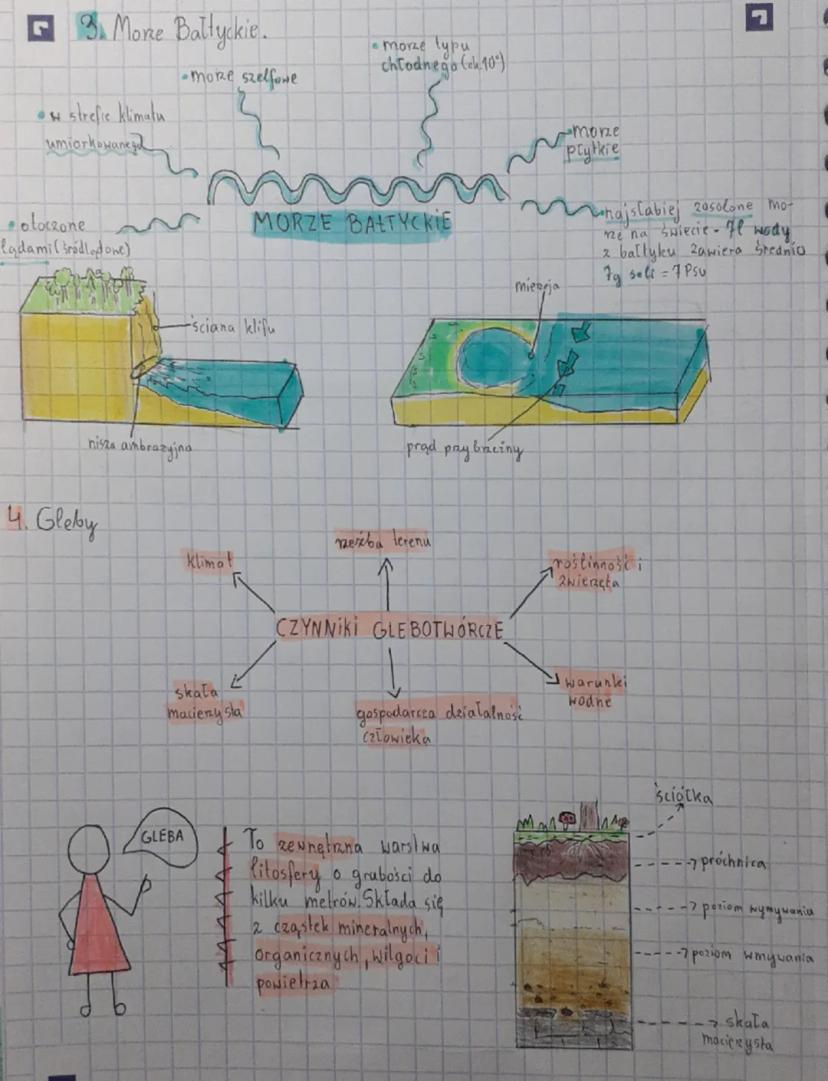 3. Morze Bałtyckie.
• morze typu
chłodnego (ok. 10°)
• morze szelfowe
• w strefie klimatu
umiarkowanego
morze
płytkie
MORZE BAŁTYCKIE
najsłabiej zasolone mo-
rze na świecie - 1l wody
z bałtyku zawiera średnio
7g soli = 7 PSU
• otoczone
lądami (śródlądowe)
mierzeja
ściana klifu
nisza ambrazyjna
prąd przybrzeżny
4. Gleby
rzeźba terenu
klimat
roślinność i
zwierzęta
CZYNNIKI GLEBOTWÓRCZE
skała
macierzysta
gospodarcza działalność
człowieka
warunki
wodne
GLEBA
To zewnętrzna warstwa
litosfery o grubości do
kilku metrów. Składa się
z cząstek mineralnych,
organicznych, wilgoci i
powietrza
ściółka
próchnica
poziom wymywania
poziom wmywania
skała
macierzysta